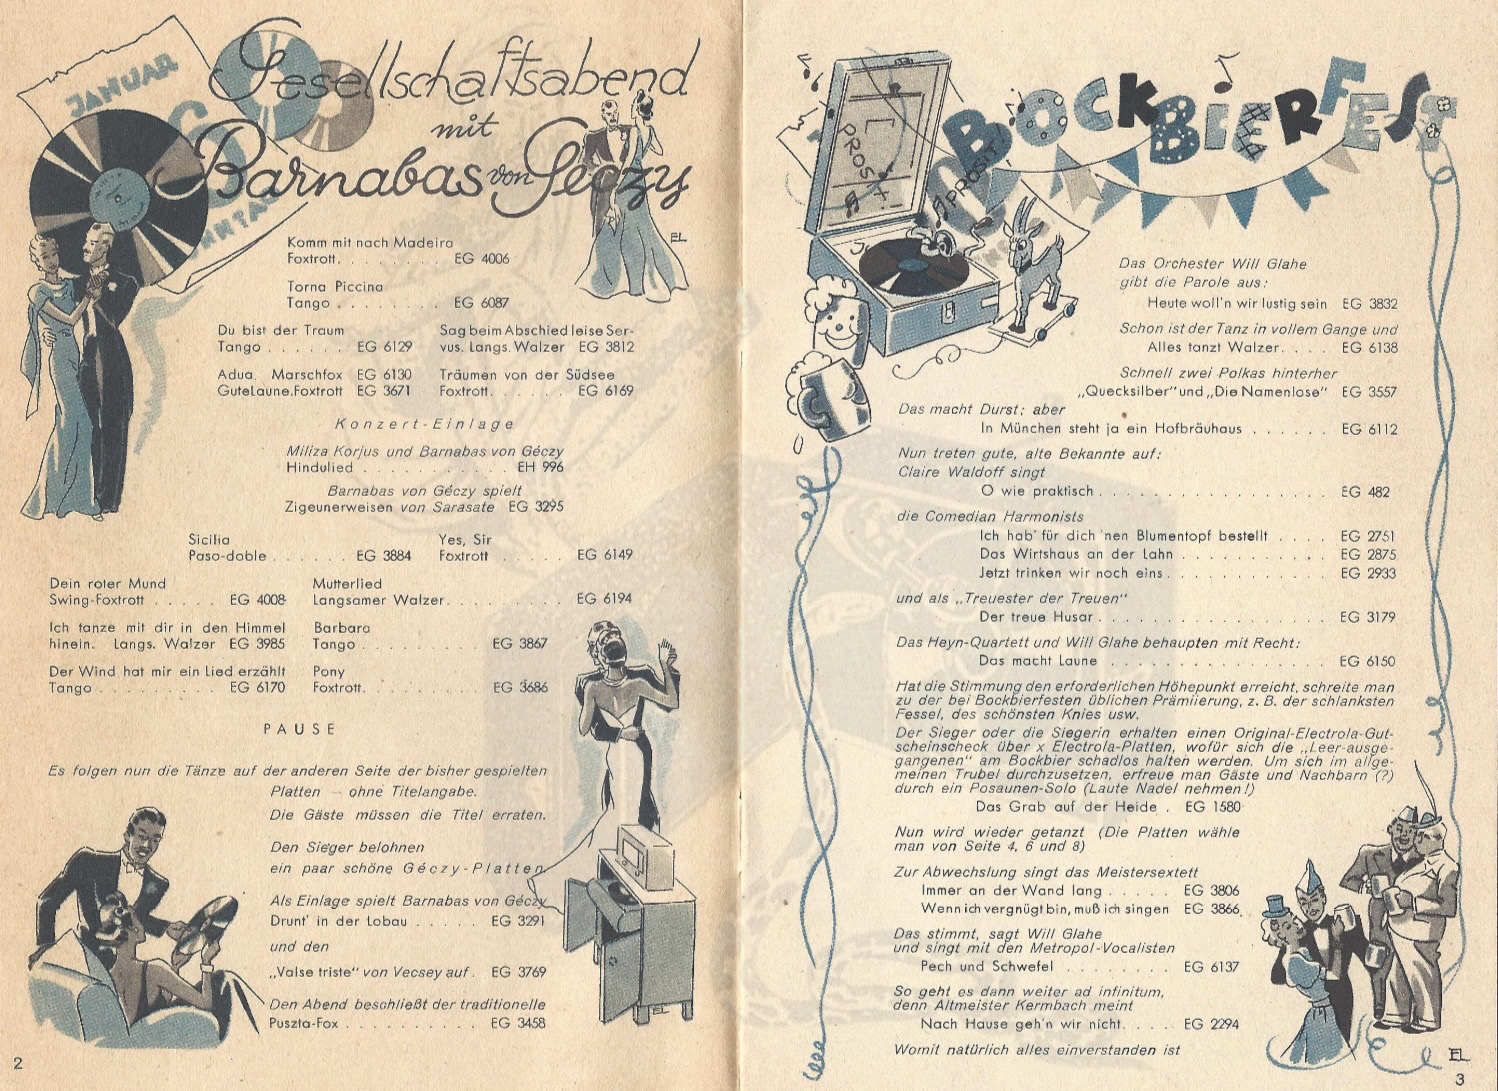 JANUAR
Gesellschaftsabend
mit
Barnabas von Géczy
EL
Komm mit nach Madeira
Foxtrott. . . . . . . . EG 4006
Torna Piccina
Tango . . . . . . . . EG 6087
Du bist der Traum
Tango . . . . . . EG 6129
Sag beim Abschied leise Ser-
vus. Langs. Walzer EG 3812
Adua. Marschfox EG 6130
Gute Laune. Foxtrott EG 3671
Träumen von der Südsee
Foxtrott. . . . . . . . EG 6169
Konzert-Einlage
Miliza Korjus und Barnabas von Géczy
Hindulied . . . . . . . . . . EH 996
Barnabas von Géczy spielt
Zigeunerweisen von Sarasate EG 3295
Sicilia
Paso-doble . . . . . . EG 3884
Yes, Sir
Foxtrott . . . . . . . . EG 6149
Dein roter Mund
Swing-Foxtrott . . . . . EG 4008
Mutterlied
Langsamer Walzer. . . . . . . . . EG 6194
Ich tanze mit dir in den Himmel
hinein. Langs. Walzer EG 3985
Barbara
Tango . . . . . . . . . . EG 3867
Der Wind hat mir ein Lied erzählt
Tango . . . . . . . . . EG 6170
Pony
Foxtrott. . . . . . . . . . EG 3686
PAUSE
Es folgen nun die Tänze auf der anderen Seite der bisher gespielten
Platten – ohne Titelangabe.
Die Gäste müssen die Titel erraten.
Den Sieger belohnen
ein paar schöne Géczy-Platten
Als Einlage spielt Barnabas von Géczy
Drunt' in der Lobau . . . . . EG 3291
und den
„Valse triste“ von Vecsey auf . EG 3769
Den Abend beschließt der traditionelle
Puszta-Fox . . . . . . . . . . EG 3458
EL
2
BOCKBIERFEST
PROSIT!
PROSIT!
Das Orchester Will Glahe
gibt die Parole aus:
Heute woll'n wir lustig sein EG 3832
Schon ist der Tanz in vollem Gange und
Alles tanzt Walzer. . . . . EG 6138
Schnell zwei Polkas hinterher
„Quecksilber“ und „Die Namenlose“ EG 3557
Das macht Durst; aber
In München steht ja ein Hofbräuhaus . . . . . . EG 6112
Nun treten gute, alte Bekannte auf:
Claire Waldoff singt
O wie praktisch . . . . . . . . . . . . . . . . . EG 482
die Comedian Harmonists
Ich hab' für dich 'nen Blumentopf bestellt . . . . EG 2751
Das Wirtshaus an der Lahn . . . . . . . . . . . . EG 2875
Jetzt trinken wir noch eins . . . . . . . . . . . . EG 2933
und als „Treuester der Treuen“
Der treue Husar . . . . . . . . . . . . . . . . . EG 3179
Das Heyn-Quartett und Will Glahe behaupten mit Recht:
Das macht Laune . . . . . . . . . . . . . . . . EG 6150
Hat die Stimmung den erforderlichen Höhepunkt erreicht, schreite man
zu der bei Bockbierfesten üblichen Prämiierung, z. B. der schlanksten
Fessel, des schönsten Knies usw.
Der Sieger oder die Siegerin erhalten einen Original-Electrola-Gut-
scheinscheck über x Electrola-Platten, wofür sich die „Leer-ausge-
gangenen“ am Bockbier schadlos halten werden. Um sich im allge-
meinen Trubel durchzusetzen, erfreue man Gäste und Nachbarn (?)
durch ein Posaunen-Solo (Laute Nadel nehmen!)
Das Grab auf der Heide . EG 1580
Nun wird wieder getanzt (Die Platten wähle
man von Seite 4, 6 und 8)
Zur Abwechslung singt das Meistersextett
Immer an der Wand lang . . . . . EG 3806
Wenn ich vergnügt bin, muß ich singen EG 3866
Das stimmt, sagt Will Glahe
und singt mit den Metropol-Vocalisten
Pech und Schwefel . . . . . . . . EG 6137
So geht es dann weiter ad infinitum,
denn Altmeister Kermbach meint
Nach Hause geh'n wir nicht. . . . . EG 2294
Womit natürlich alles einverstanden ist
EL
3